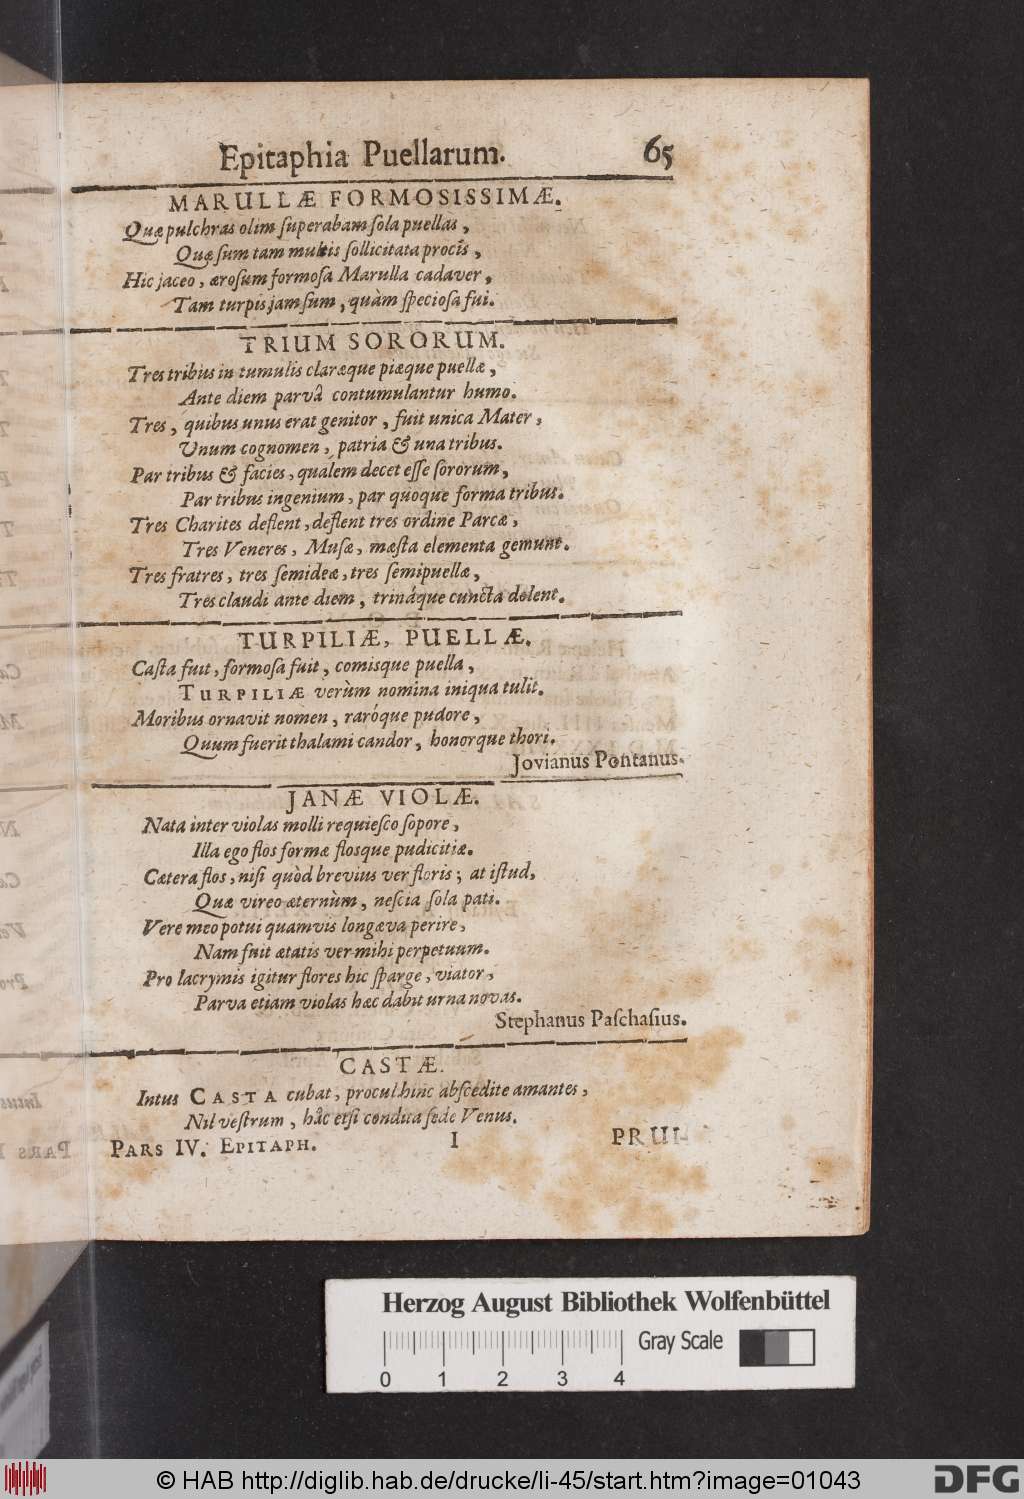 Epitaphia Puellarum. 65
MARULLÆ FORMOSISSIMÆ.
Quæ pulchras olim ſuperabam ſola puellas,
Quæ ſum tam multis ſollicitata procis,
Hic jaceo, æroſum formoſa Marulla cadaver,
Tam turpis jam ſum, quàm ſpecioſa fui.
TRIUM SORORUM.
Tres tribus in tumulis claræque piæque puellæ,
Ante diem parvâ contumulantur humo.
Tres, quibus unus erat genitor, fuit unica Mater,
Unum cognomen, patria & una tribus.
Par tribus & facies, qualem decet eſſe ſororum,
Par tribus ingenium, par quoque forma tribus.
Tres Charites deflent, deflent tres ordine Parcæ,
Tres Veneres, Muſæ, mœſta elementa gemunt.
Tres fratres, tres ſemideæ, tres ſemipuellæ,
Tres claudi ante diem, trináque cuncta dolent.
TURPILIÆ, PUELLÆ.
Caſta fuit, formoſa fuit, comisque puella,
TURPILIÆ verùm nomina iniqua tulit.
Moribus ornavit nomen, raróque pudore,
Quum fuerit thalami candor, honorque thori.
Jovianus Pontanus.
JANÆ VIOLÆ.
Nata inter violas molli requieſco ſopore,
Illa ego flos formæ flosque pudicitiæ.
Cætera flos, niſi quòd brevius ver floris; at iſtud,
Quæ vireo æternùm, neſcia ſola pati.
Vere meo potui quamvis longæva perire,
Nam fuit ætatis ver mihi perpetuum.
Pro lacrymis igitur flores hic ſparge, viator,
Parva etiam violas hæc dabit urna novas.
Stephanus Paſchaſius.
CASTÆ.
Intus CASTA cubat, procul hinc abſcedite amantes,
Nil veſtrum, hâc etſi condita ſede Venus.
PARS IV. EPITAPH. I PRUI-
Herzog August Bibliothek Wolfenbüttel
Gray Scale
0 1 2 3 4
© HAB http://diglib.hab.de/drucke/li-45/start.htm?image=01043 DFG